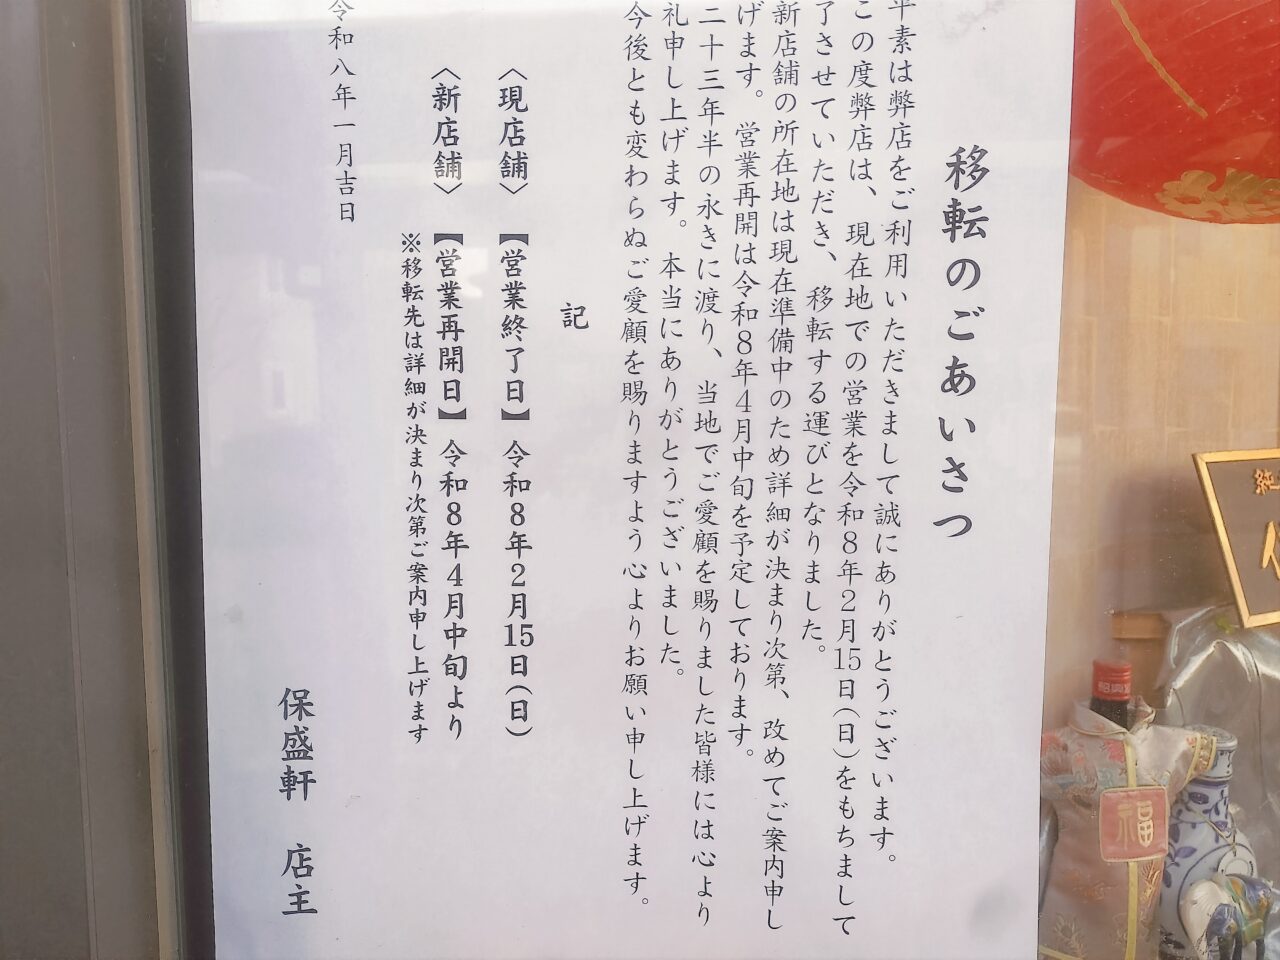 移転のごあいさつ
平素は弊店をご利用いただきまして誠にありがとうございます。
この度弊店は、現在地での営業を令和8年2月15日(日)をもちまして
了させていただき、移転する運びとなりました。
新店舗の所在地は現在準備中のため詳細が決まり次第、改めてご案内申し
げます。営業再開は令和8年4月中旬を予定しております。
二十三年半の永きに渡り、当地でご愛顧を賜りました皆様には心より
礼申し上げます。本当にありがとうございました。
今後とも変わらぬご愛顧を賜りますよう心よりお願い申し上げます。
記
〈現店舗〉【営業終了日】令和8年2月15日(日)
〈新店舗〉【営業再開日】令和8年4月中旬より
※移転先は詳細が決まり次第ご案内申し上げます
令和八年一月吉日
保盛軒 店主
福